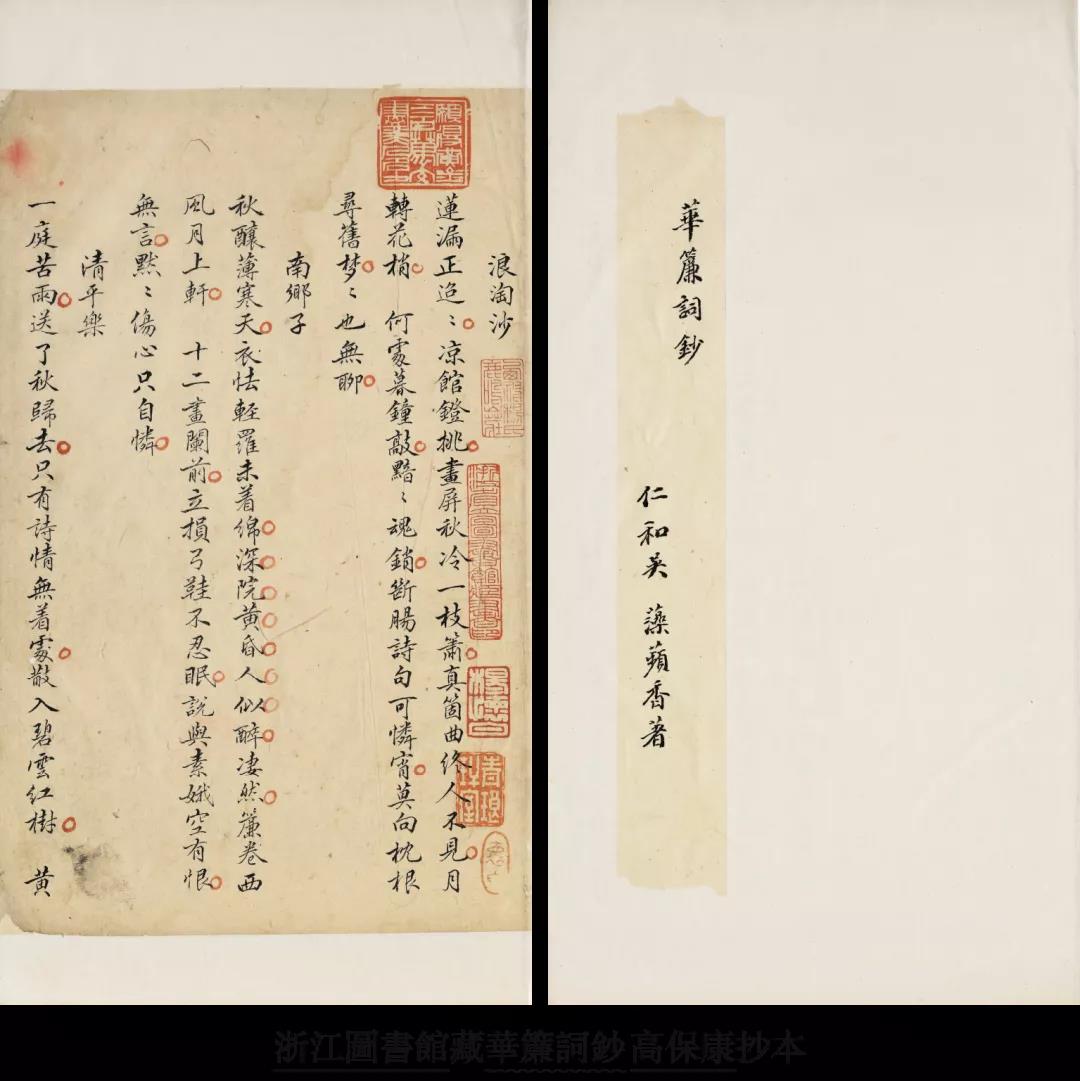 華簾詞鈔
仁和吳 藻蘋香著
浪淘沙
蓮漏正迢〻凉館鐙挑畫屏秋冷一枝簫真箇曲终人不見月
轉花梢 何處暮鐘敲黯〻魂銷斷腸詩句可憐宵莫向枕根
尋舊梦〻也無聊
南鄉子
秋釀薄寒天衣怯輕羅未着綿深院黄昏人似醉凄然簾卷西
風月上軒 十二畫闌前立損弓鞋不忍眠説與素娥空有恨
無言默〻傷心只自憐
清平樂
一庭苦雨送了秋歸去只有詩情無着處散入碧雲红樹 黄
浙江圖書館藏華簾詞鈔高保康抄本